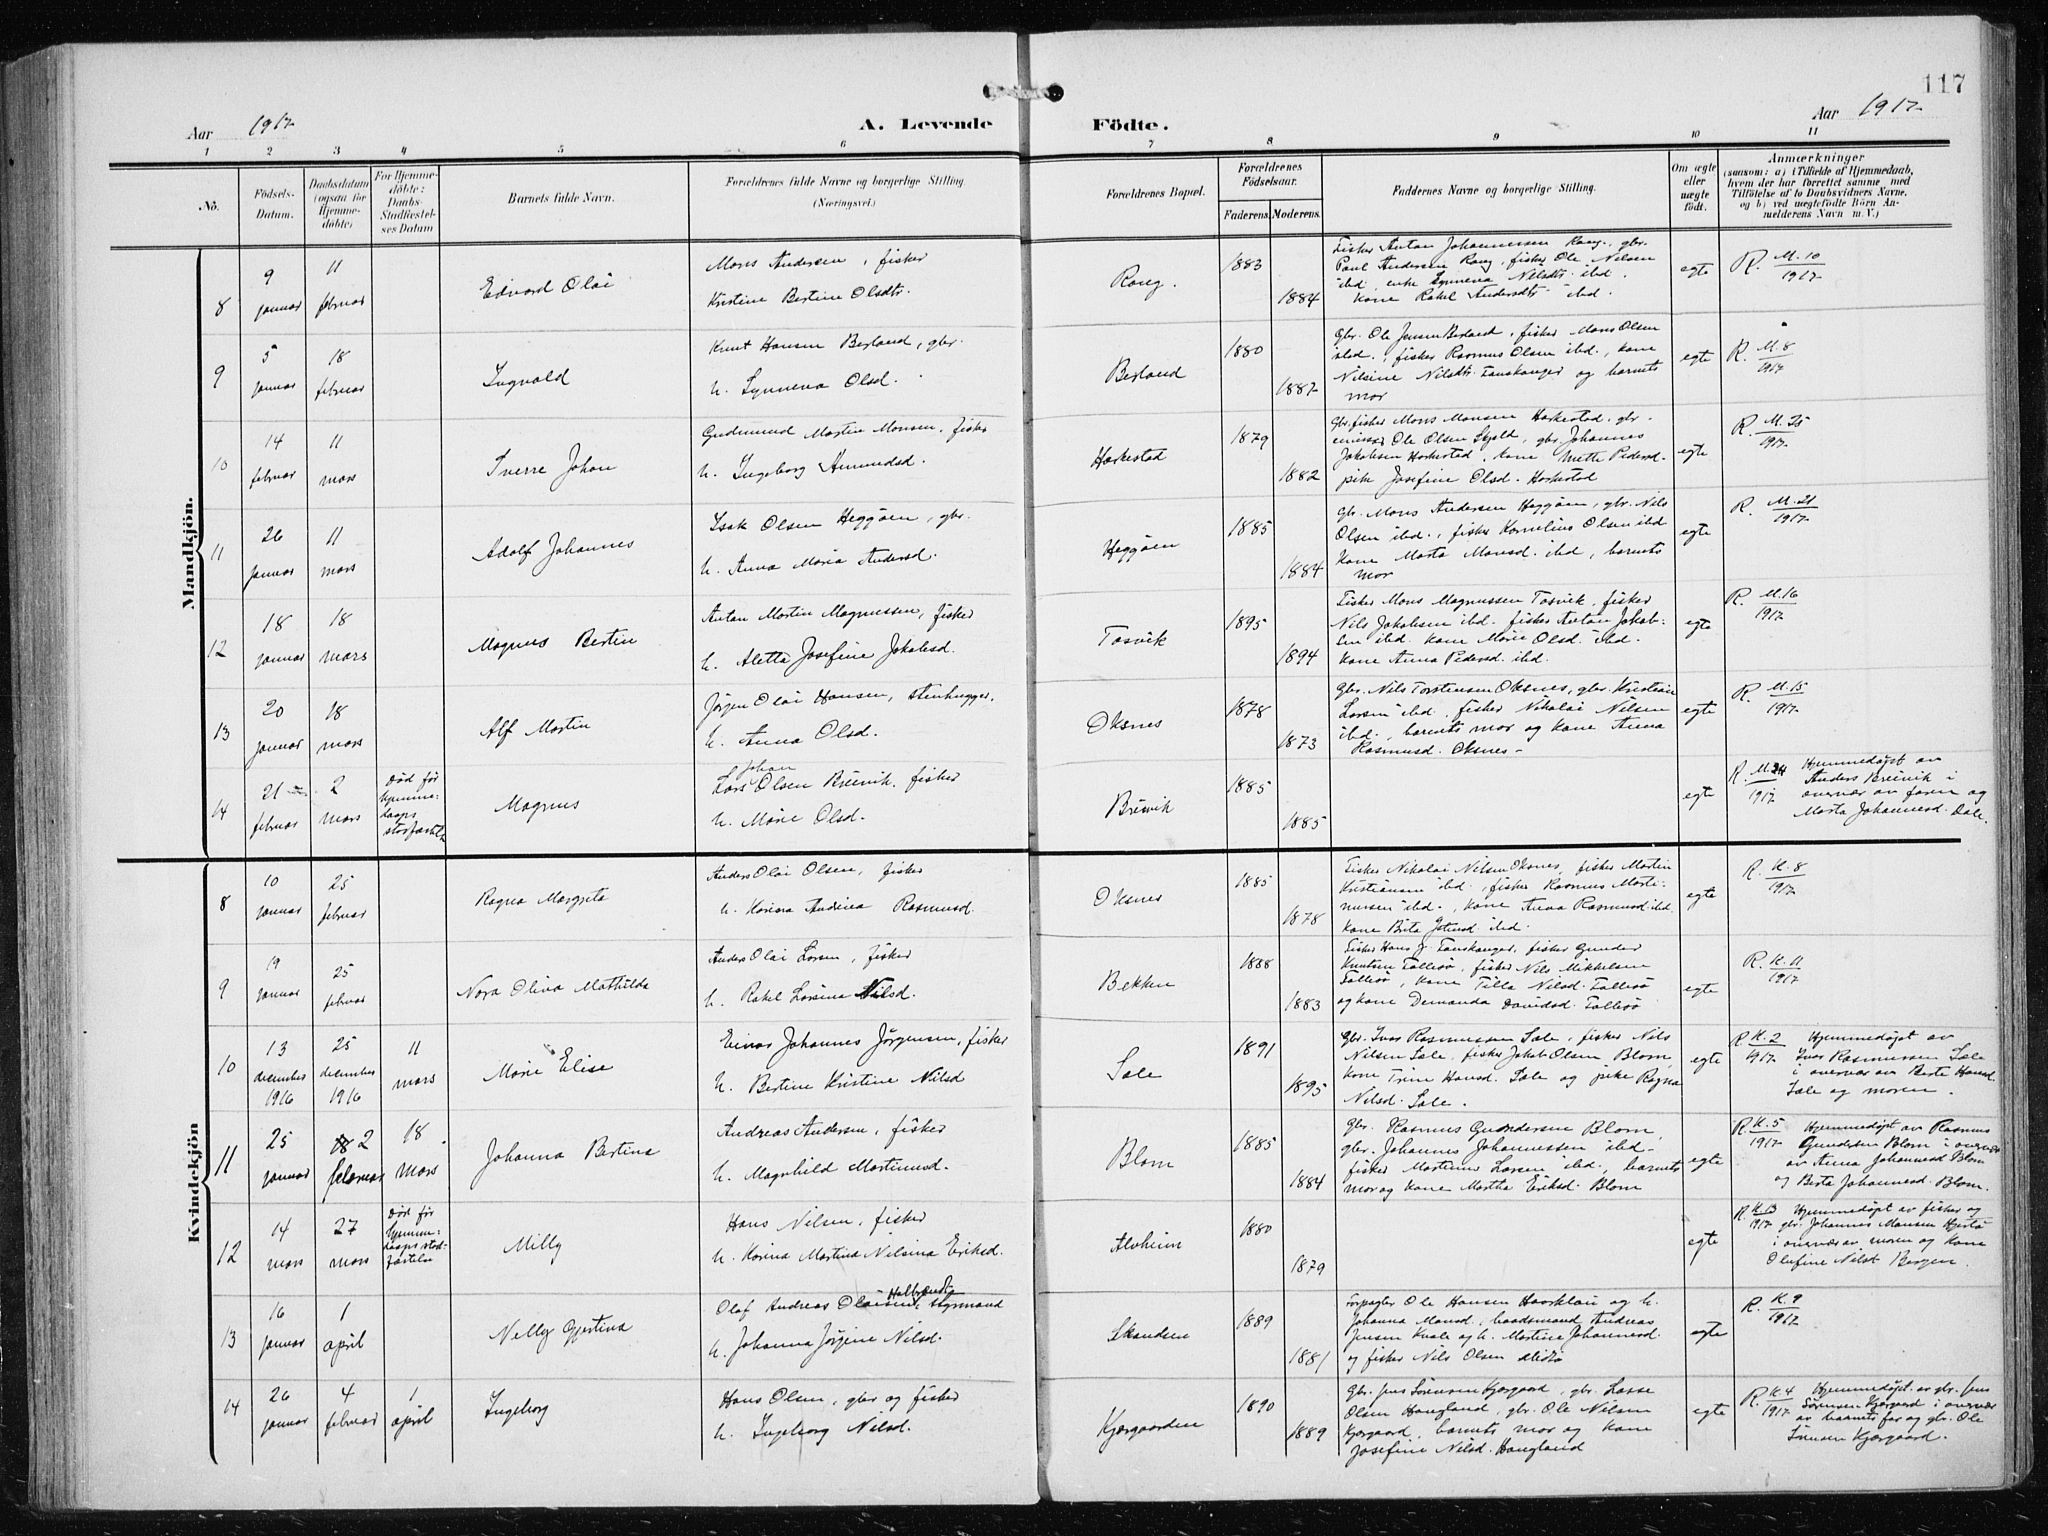 117
Aar 1917
A. Levende Födte.
Aar 1917
1 2 3 4 5 6 7 8 9 10 11
No.
Födsels-
Datum.
Daabsdatum
(ogsaa for
Hjemme-
döbte)
For Hjemme-
döbte:
Daabs-
Stadfæstel-
ses Datum
Barnets fulde Navn.
Forældrenes fulde Navne og borgerlige Stilling
(Næringsvei.)
Forældrenes Bopæl.
Forældrenes
Födselsaar.
Faderens. Moderens.
Faddernes Navne og borgerlige Stilling.
Om ægte
eller
uægte
födt.
Anmærkninger
(saasom: a) i Tilfælde af Hjemmedaab,
hvem der har forrettet samme med
Tilföielse af to Daabsvidners Navne,
og b) ved uægtefödte Börn An-
melderens Navn m. V.)
Mandkjön.
8
9 januar
11 februar
Edvard Olai
Mons Andersen, fisker
Kristine Bertine Olsdtr.
Rong.
1883
1884
Fisker Anton Johannessen Rong, gbr.
Paul Andersen Rong, fisker Ole Nilsen
ibd, enke Synneva Nilsdtr ibd.
Kone Rakel Andersdtr ibd.
egte
R. M. 10
1917
9
5 januar
18 februar
Ingvald
Knut Hansen Berland, gbr.
h. Synneva Olsd.
Berland
1880
1887
Gbr. Ole Jensen Berland, fisker Mons Olsen
ibd., fisker Rasmus Olsen ibd., kone
Nilsine Nilsdtr. Fanskanger og barnets
mor
egte
R. M. 8
1917
10
14 februar
11 mars
Sverre Johan
Gudmund Martin Monsen, fisker
h. Ingeborg Amundsd.
Harkestad
1879
1882
Gbr. fisker Mons Monsen Harkestad, gbr.
Ole Olsen Skjold, gbr. Johannes
Jakobsen Harkestad, kone Mette Pedersd.
pike Josefine Olsd. Harkestad
egte
R. M. 25
1917
11
26 januar
11 mars
Adolf Johannes
Isak Olsen Heggöen, gbr.
h. Anna Maria Andersd.
Heggöen
1885
1884
Gbr. Mons Andersen Heggöen, gbr. Nils
Olsen ibd., fisker Kornelius Olsen ibd
Kone Marta Monsd. ibd, barnets
mor
egte
R. M. 21
1917
12
18 januar
18 mars
Magnus Bertin
Anton Martin Magnussen, fisker
h. Aletta Josefine Jakobsd.
Tosvik
1895
1894
Fisker Mons Magnussen Tosvik, fisker
Nils Jakobsen ibd. fisker Anton Jakob-
sen ibd. kone Marie Olsd. ibd.
kone Anna Pedersd. ibd.
egte
R. M. 16
1917
13
20 januar
18 mars
Alf Martin
Jørgen Olai Hansen, stenhugger.
h. Anna Olsd.
Oksnes
1878
1873
Gbr. Nils Torstensen Oksnes, gbr. Kristian
Larsen ibd, fisker Nikolai Nilsen
ibd., barnets mor og kone Anna
Rasmusd. Oksnes -
egte
R. M. 15
1917
14
21 februar
2 mars
Död för
hjemme-
daaps
stadfæstelse
Magnus
Johan
Lars Olsen Breivik, fisker
h. Marie Olsd.
Breivik
1885
1885
egte
R. M. 24
1917
Hjemmedöpt av
Anders Breivik i
overvær av faren og
Marta Johannesd. Dale.
Kvindekjön
8
10 januar
25 februar
Ragna Margreta
Anders Olai Olsen, fisker
h. Karina Andrea Rasmusd.
Oksnes
1885
1878
Fisker Nikolai Nilsen Oksnes, fisker Martin
Kristiansen ibd., fisker Rasmus Marti-
nussen ibd., kone Anna Rasmusd ibd.
kone Brita ibd.
egte
R. K. 8
1917
9
19 januar
25 februar
Nora Oliva Mathilda
Anders Olai Larsen, fisker
h. Rakel Larsina Nilsd.
Bekken
1888
1883
Fisker Hans J. Fanskanger, fisker Gunder
Knutsen Tollesö, fisker Nils Mikkelsen
Tollesö, kone Tilla Nilsd. Tollesö
og kone Demanda Davidsd. Tollesö
egte
R. K. 11
1917
10
13 december 1916
25 december 1916
11 mars
Marie Elise
Einar Johannes Jörgensen, fisker
h. Bertine Kristine Nilsd
Sale
1891
1895
Gbr. Ivar Rasmussen Sale, fisker Nils
Nilsen Sale, fisker Jakob Olsen Blom,
kone Trine Hansd. Sale og pike Ragna
Nilsd. Sale.
egte
R. K. 2
1917
Hjemmedöpt av
Ivar Rasmussen Sale
i overvær av Berte Hansd.
Sale og moren.
11
25 januar
2 februar
18 mars
Johanna Bertina
Andreas Andersen, fisker
h. Magnhild Martinusd.
Blom
1885
1884
Gbr. Rasmus Gundersen Blom,
gbr. Johannes Johannessen ibd.
fisker Martinus Larsen ibd., barnets
mor og kone Martha Eriksd. Blom
egte
R. K. 5
1917
Hjemmedöpt av Rasmus
Gundersen Blom i overvær
av Anna Johannesd Blom
og Berta Johannesd. Blom.
12
14 mars
27 mars
Död för
hjemme-
daaps stad-
fæstelse
Milly
Hans Nilsen, fisker
h. Karina Martina Nilsina Eriksd.
Alvheim
1880
1879
egte
R. K. 13
1917
Hjemmedöpt av fisker og
gbr. Johannes Monsen
i overvær av moren og kone
Olufine Nilsd Bergen.
13
16 januar
1 april
Nelly Gjertina
Olaf Andreas styrmand
h. Johanna Jörgine Nilsd.
Skandsen
1889
1881
Forpagter Ole Hansen og h.
Johanna Monsd., baadsmand Andreas
Jensen Kvale og h. Martine Johannesd.
og fisker Nils Olsen
egte
R. K. 9
1917
14
26 januar
4 februar
1 april
Ingeborg
Hans Olsen, gbr og fisker
h. Ingeborg Nilsd.
Kjærgaarden
1890
1889
Gbr. Jens Sörensen Kjærgaard, gbr. Lasse
Olsen Haugland, gbr. Ole Nilsen
Kjærgaard, barnets mor og kone
Josefine Nilsd. Haugland
egte
R. K. 4
1917
Hjemmedöpt av gbr. Jens
Sörensen Kjærgaard i overvær
av barnets far og gbr. Ole
Kjærgaard.